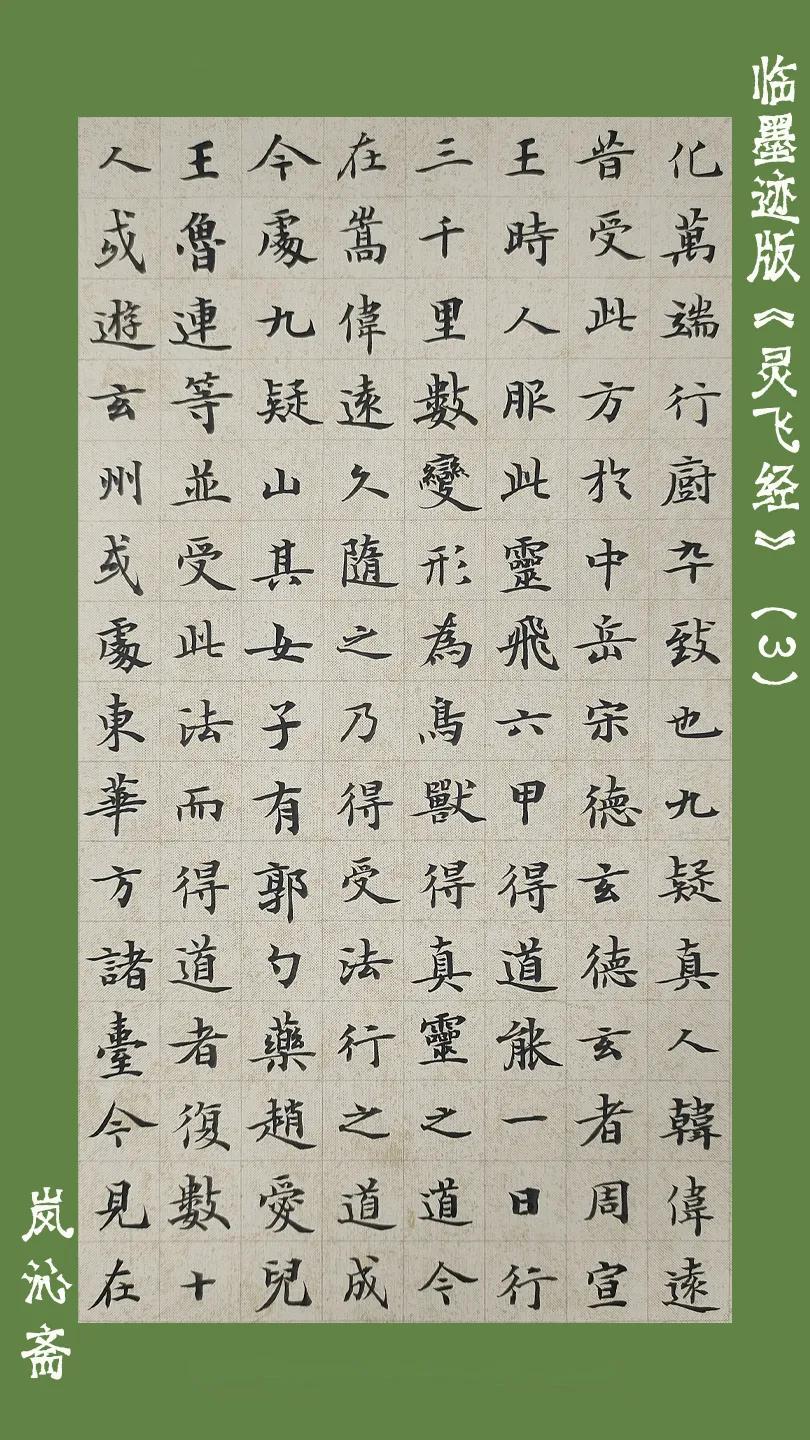 临墨迹版《灵飞经》（3）
化萬端行厨卒致也九疑真人韓偉遠
昔受此方於中岳宋德玄德玄者周宣
王時人服此靈飛六甲得道能一日行
三千里數變形為鳥獸得真靈之道今
在嵩偉遠久隨之乃得受法行之道成
今處九疑山其女子有郭勺藥趙愛兒
王魯連等並受此法而得道者復數十
人或遊玄州或處東華方諸臺今見在
岚沁斋